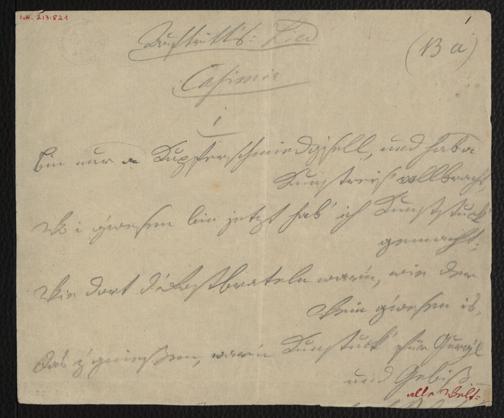 I.N. 213.821
1
Auftritts-Lied
(B a)
Casimir
1
Bin nur a Kupferschmiedgsell, und habe
Kunstreis' vollbracht
Wo i gwesen bin jetzt hab' ich Kunststuck
gemacht:
Wie dort d' Rostbrateln warn, wie der
Wein gwesen is,
Das z'gniessen, warn Kunststuck für Gurgl
und Gebiß
alle Welt: